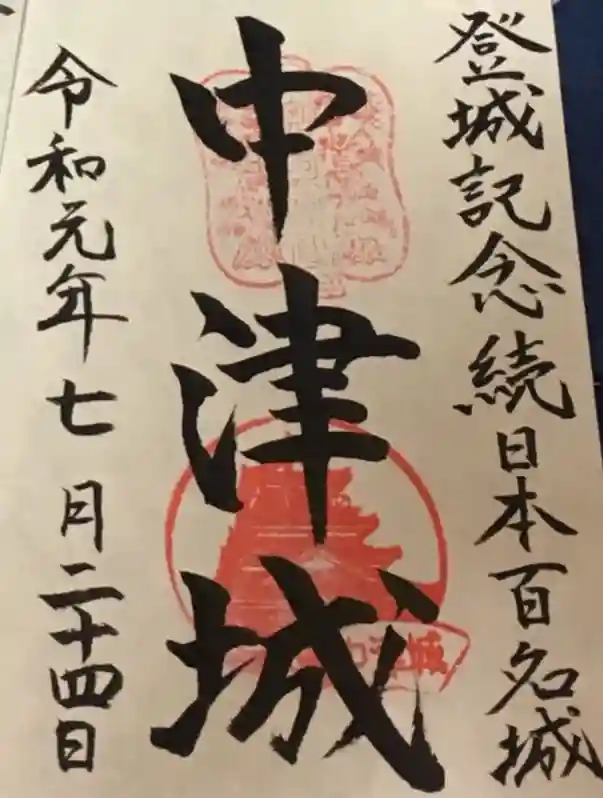 登城記念続日本百名城
中津城
令和元年七月二十四日
中津城